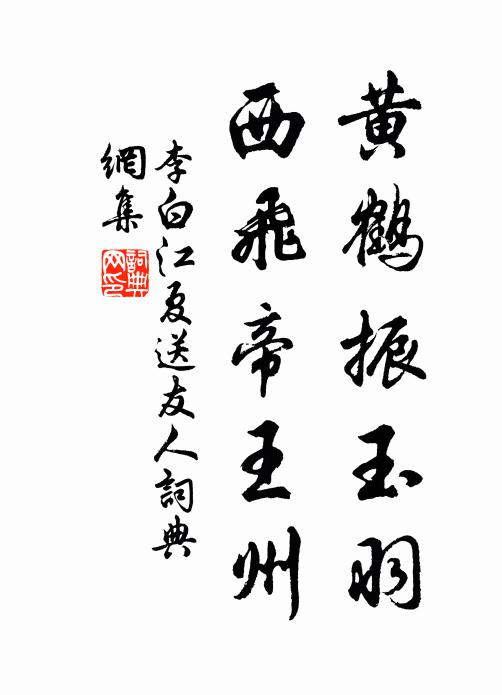 黄鹤振玉羽
西飛帝王州
李白江夏送友人詞典
網集
詞典
网印